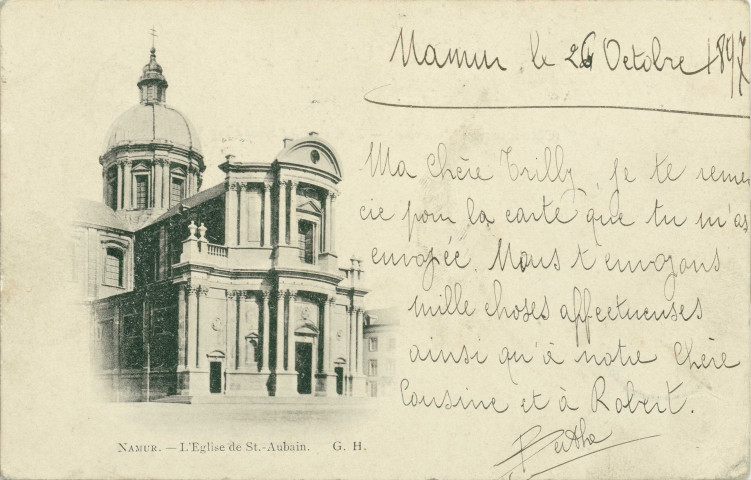 Namur, le 26 Octobre 1897
Ma Chère Trilly, je te remer
cie pour la carte que tu m'as
envoyée. Nous t'envoyons
mille choses affectueuses
ainsi qu'à notre Chère
Cousine et à Robert.
Berthe
NAMUR. — L'Eglise de St.-Aubain. G. H.